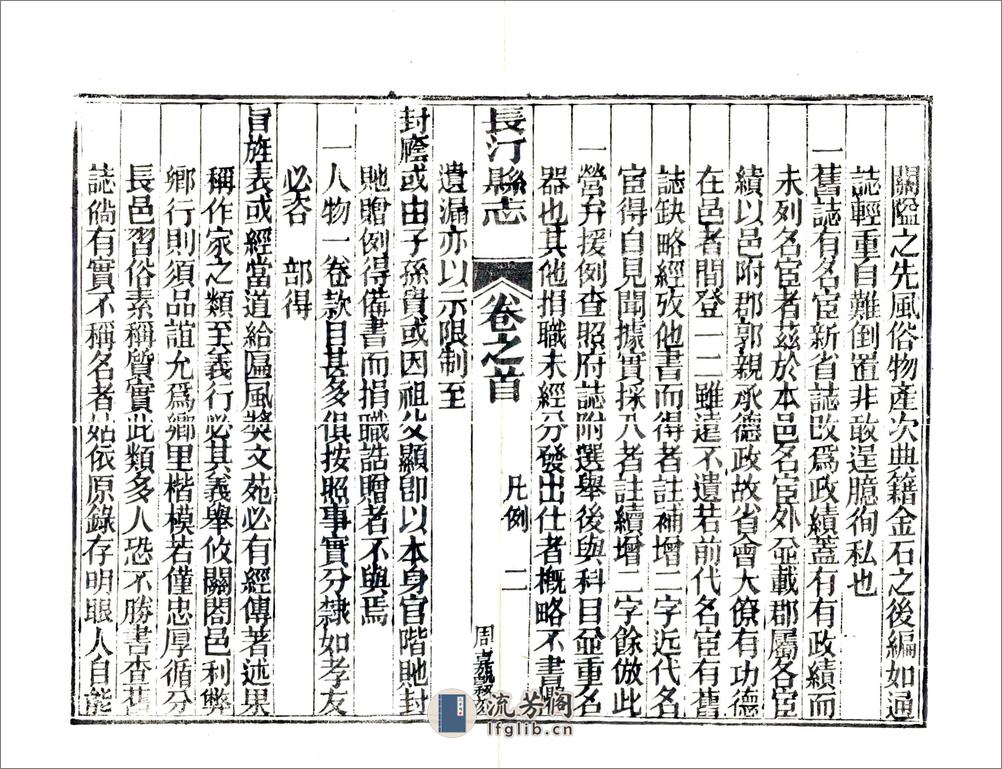 關隘之先風俗物產次典籍金石之後編如通
誌輕重自難倒置非敢逞臆徇私也
一舊誌有名宦新省誌改爲政績蓋有有政績而
未列名宦者茲於本邑名宦外並載郡屬各臣
績以邑附郡郭親承德政故省會大僚有功德
在邑者間登一二雖遠不遺若前代名宦有舊
誌缺略經攷他書而得者註補增二字近代名
宦得自見聞據實採入者註續增二字餘倣此
一營弁援例查照府誌附選舉後與科目並重名
器也其他捐職未經分發出仕者概略不書
長汀縣志 卷之首 凡例 二
遺漏亦以示限制至
封廕或由子孫貴或因祖父顯卽以本身官階貤封
貤贈例得備書而捐職誥贈者不與焉
一人物一卷款目甚多俱按照事實分隸如孝友
必咨 部得
旨旌表或經當道給匾風奬文苑必有經傳著述果
稱作家之類至義行必其義舉攸關閤邑利弊
鄉行則須品誼允爲鄉里楷模若僅忠厚循分
長邑習俗素稱質實此類多人恐不勝書查舊
誌倘有實不稱名者姑依原錄存明眼人自能
流芳閣
lfglib.cn